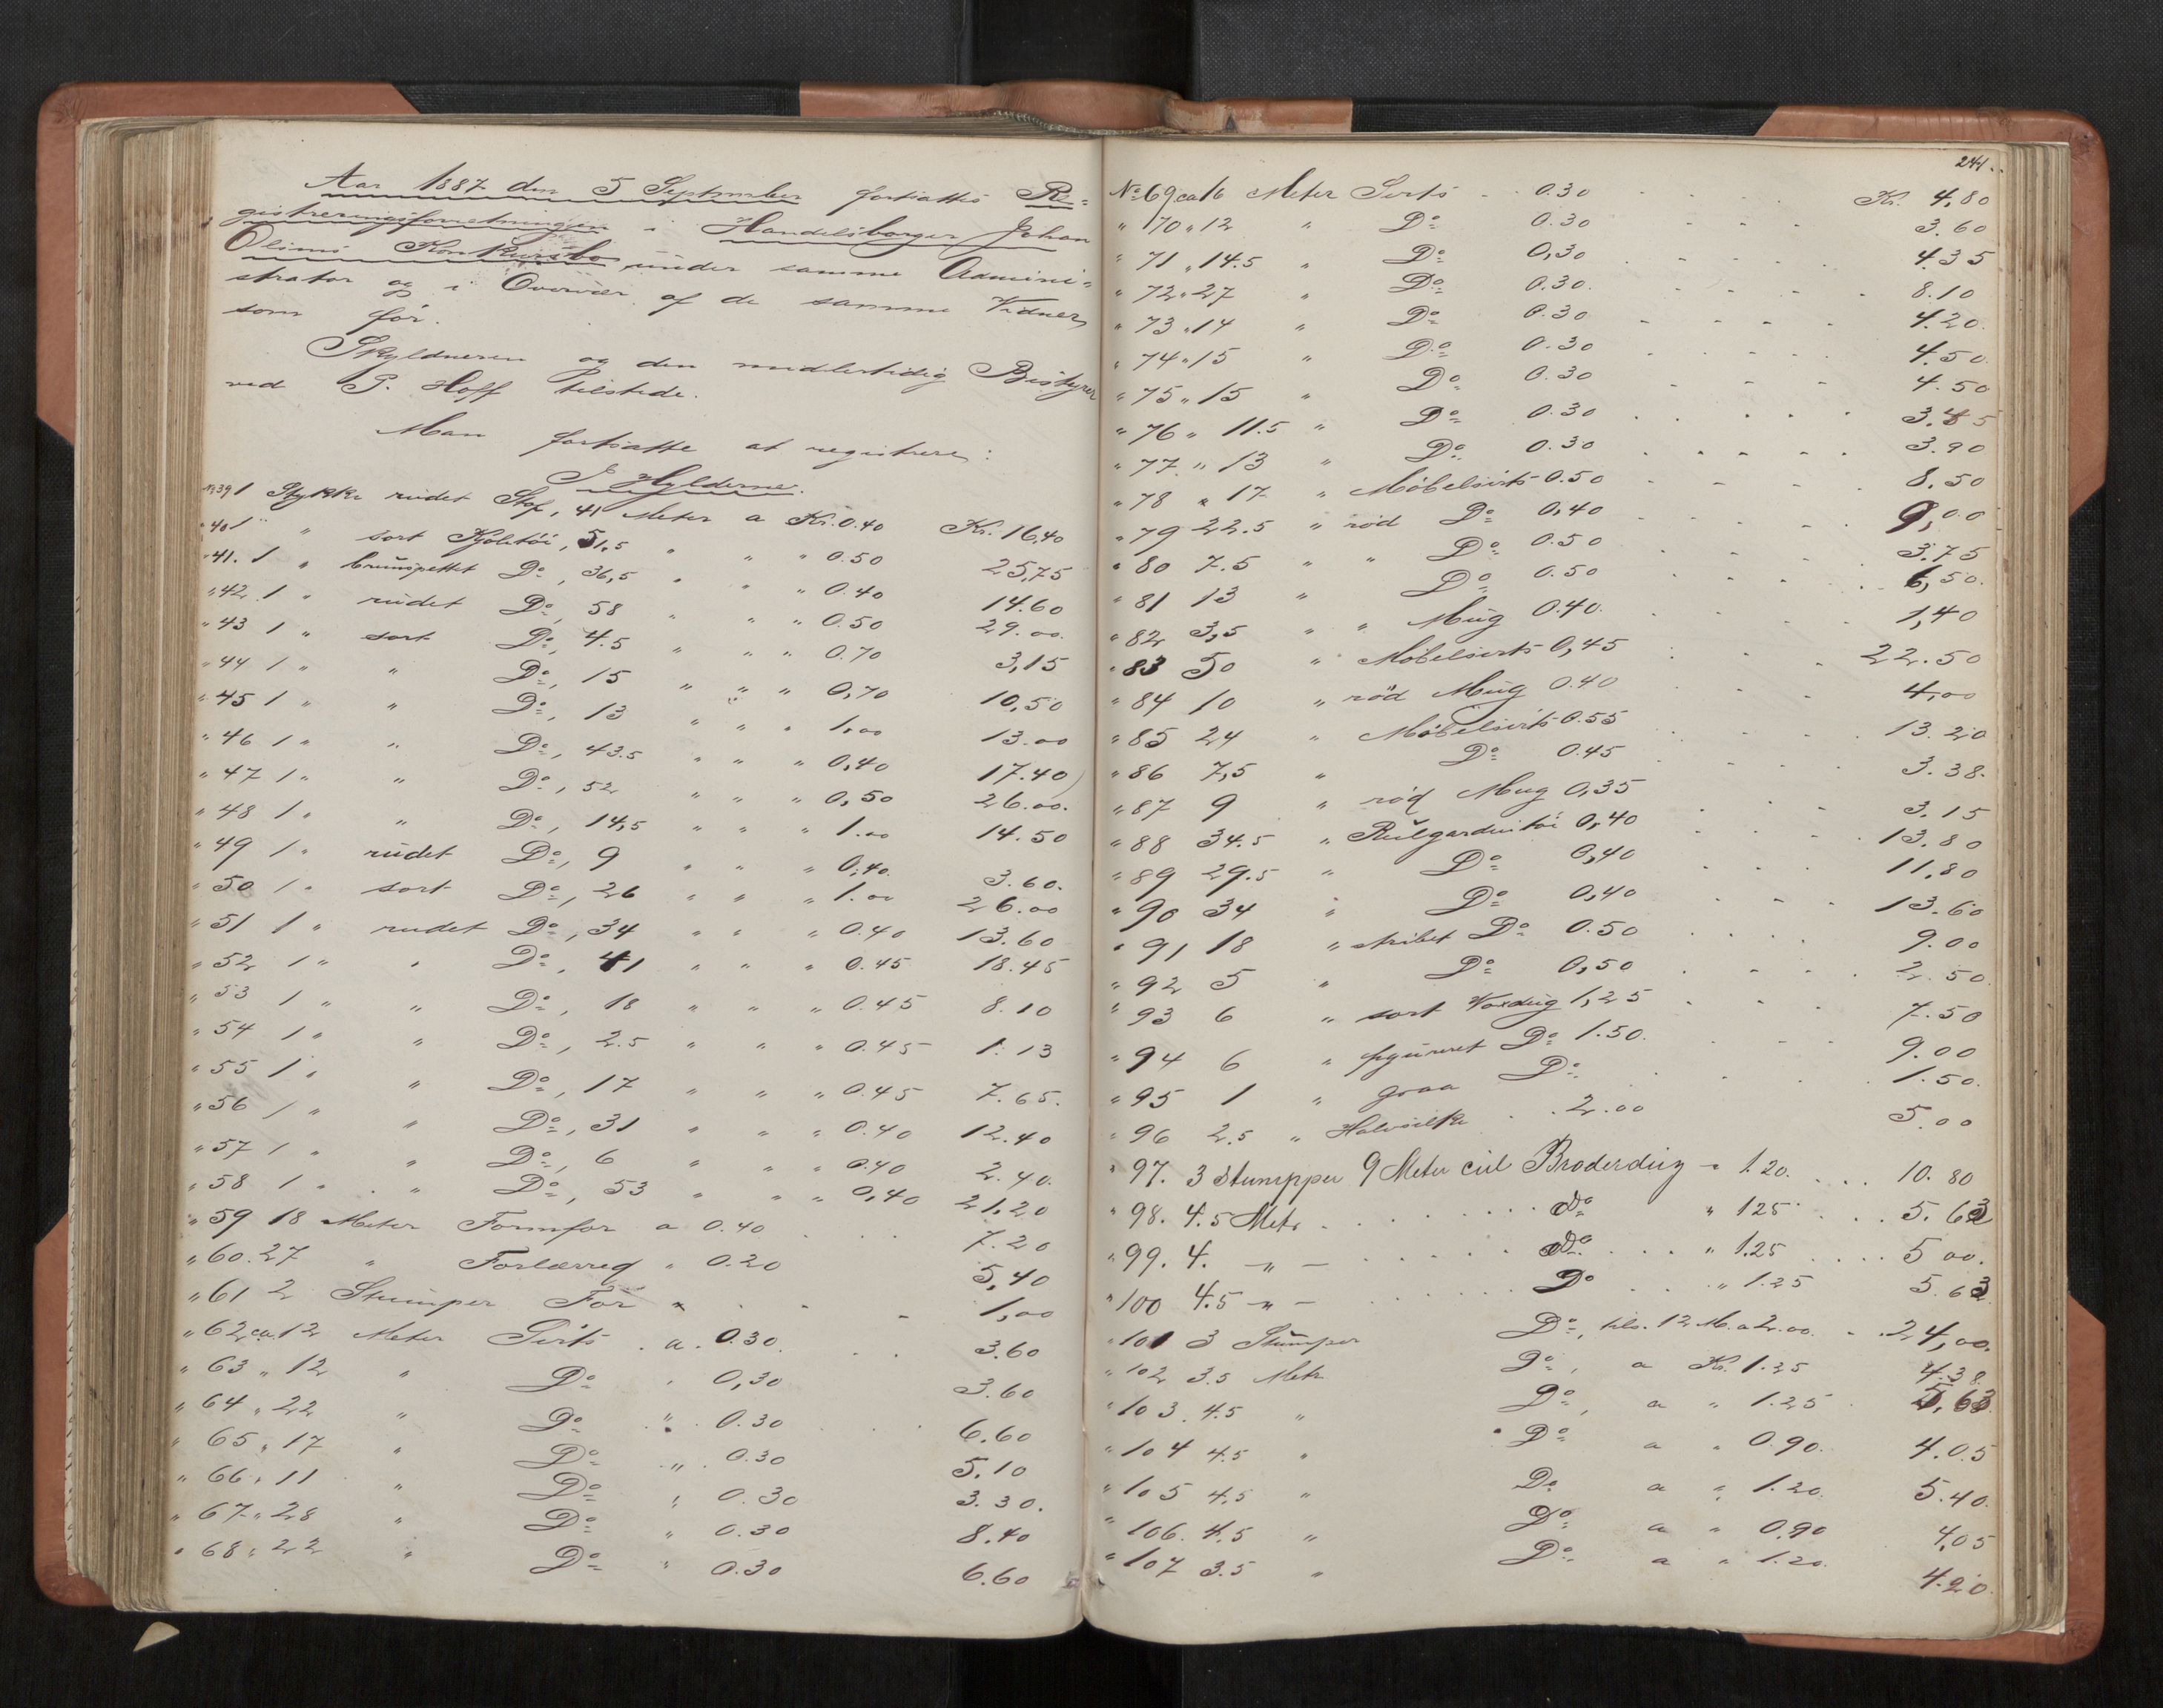 Aar 1887 den 5 September fortsattes Re=
gistreringsforretningen i Handelsborger Johan
Olsens Konkursbo under samme Admini=
strator og i Overvær af de samme Vidner
som før.
Skyldneren og den midlertidig Bestyrer
ved P. Hoff tilstede.
Man fortsatte at registrere:
I Hylderne.
No 39 1 Stykke rudet Stof, 41 Meter a Kr. 0.40 Kr. 16,40
" 40 1 " sort Kjoletøi, 51,5 " " " 0.50 25,75
" 41. 1 " brunspettet Do, 36,5 " " " 0.40 14.60
" 42 1 " rudet Do, 58 " " " 0.50 29.00.
" 43 1 " sort Do, 4.5 " " " 0.70 3,15
" 44 1 " " Do, 15 " " " 0,70 10,50
" 45 1 " " Do, 13 " " " 1,00 13.00
" 46 1 " " Do, 43.5 " " " 0,40 17.40
" 47 1 " " Do, 52 " " " 0,50 26.00.
" 48 1 " " Do, 14,5 " " " 1.00 14.50
" 49 1 " rudet Do, 9 " " " 0,40. 3.60.
" 50 1 " sort Do, 26 " " " 1.00 26.00
" 51 1 " rudet Do, 34 " " " 0.40 13.60
" 52 1 " " Do, 41 " " " 0.45 18.45
" 53 1 " " Do, 18 " " " 0.45 8.10
" 54 1 " " Do, 2.5 " " " 0.45 1.13
" 55 1 " " Do, 17 " " " 0.45 7.65.
" 56 1 " " Do, 31 " " " 0.40 12.40
" 57 1 " " Do, 6 " " " 0.40 2.40.
" 58 1 " " Do, 53 " " " 0,40 21,20
" 59 18 Meter Formfor a 0.40 7.20
" 60. 27 " Forlærred " 0.20 5,40
" 61 2 Stumper For " 1,00
" 62 ca. 12 Meter Sirts a. 0.30. 3.60
" 63 " 12 " Do " 0,30 3.60
" 64 " 22 " Do " 0.30 6.60
" 65 " 17 " Do " 0.30 5.10
" 66 " 11 " Do " 0.30 3.30.
" 67 " 28 " Do " 0.30 8.40
" 68 " 22 " Do " 0.30 6.60
241.
No 69 ca 16 Meter Sirts 0.30 Kr. 4,80
" 70 " 12 " Do 0.30 3.60
" 71 " 14.5 " Do 0,30 4.35
" 72 " 27 " Do 0.30. 8.10
" 73 " 14 " Do 0.30 4.20.
" 74 " 15 " Do 0.30 4.50.
" 75 " 15 " Do 0.30 4.50
" 76 " 11.5 " Do 0.30 3.45
" 77 " 13 " Do 0.30 3.90
" 78 " 17 " Møbelsirts 0.50 8.50
" 79 22.5 " rød Do 0,40 9,00
" 80 7.5 " " Do 0.50 3.75
" 81 13 " Do 0.50 6,50.
" 82 3,5 " " Mug 0.40. 1,40
" 83 50 " Møbelsirts 0,45 22.50
" 84 10 " rød Mug 0.40 4,00
" 85 24 " Møbelsirts 0.55 13.20
" 86 7,5 " Do 0.45 3.38.
" 87 9 " rød Mug 0,35 3.15
" 88 34.5 " Rulgardintøi 0,40 13.80
" 89 29.5 " Do 0,40 11.80
" 90 34 " Do 0,40 13.60
" 91 18 " stribet Do 0.50 9.00
" 92 5 " Do 0,50 2.50.
" 93 6 " sort Voxdug 1,25 7.50
" 94 6 " figureret Do 1.50. 9.00
" 95 1 " graa Do 1.50.
" 96 2.5 " Halvsilke 2.00 5.00
" 97. 3 Stumpper 9 Meter cul Broderdug a 1.20. 10.80
" 98. 4.5 Metr. do " 125 5.63
" 99. 4. " do " 1.25 5 00.
" 100 4.5 " Do " 1.25 5.63
" 101 3 Stumper Do, tils. 12 M. a 2.00. 24,00.
" 102 3.5 Metr. Do, a Kr. 1.25 4.38.
" 103. 4.5 " Do, a " 1.25 5,63.
" 104 4.5 " Do a " 0.90. 4.05
" 105 4,5 " Do a " 1.20. 5.40.
" 106. 4.5 " Do a " 0.90 4,05
" 107 3.5 " Do a " 1.20. 4.20.